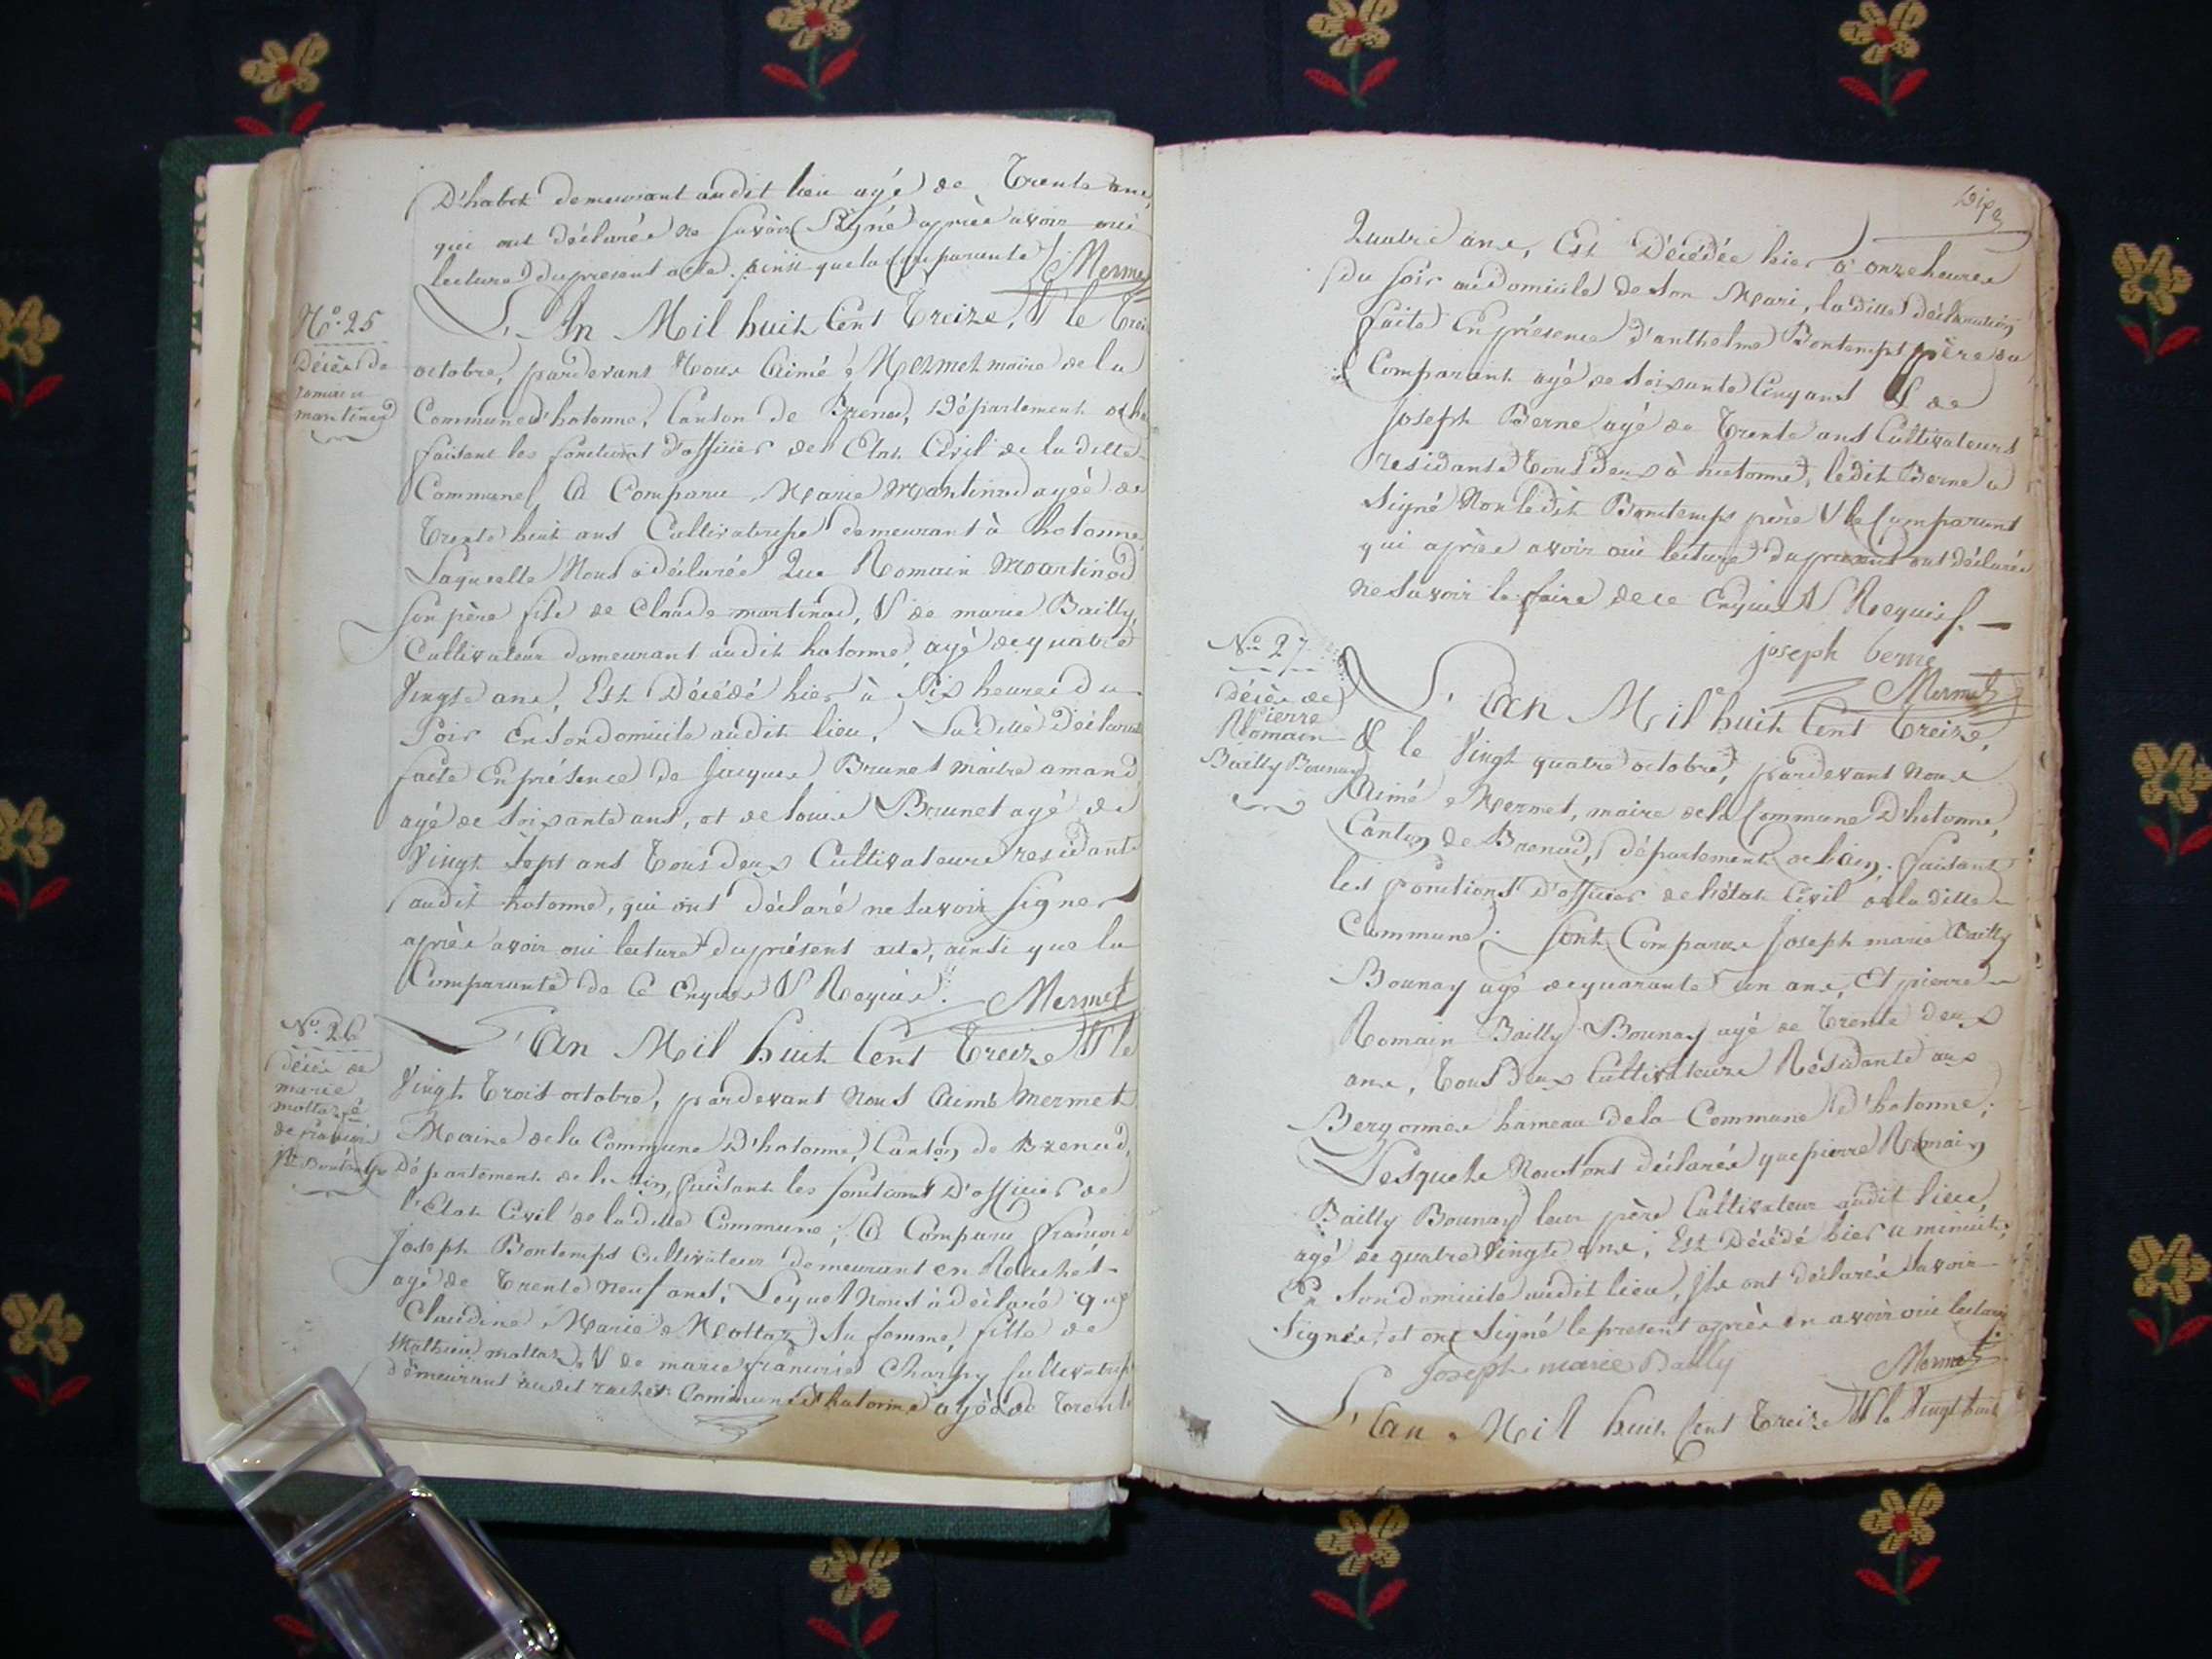 D'habit demeurant audit lieu agé de Trente ans,
qui ont déclarés ne savoir Signé après avoir oui
lecture du present acte. ainsi que la Comparante Mermet
L'An Mil huit Cent Treize, & le Trei
No. 25
Décès de
romain
martinod
octobre, pardevant Nous Aimé Mermet maire de la
Commune d'hotonne, Canton de Brenod, Département de
faisant les fonctions d'officier de l'Etat Civil de la ditte
Commune, A Comparu Marie Martinod agée de
Trente huit ans Cultivatrisse demeurant à hotonne
Laquelle Nous a déclarée Que Romain Martinod
Son père fils de Claude martinod, & de marie Bailly,
Cultivateur demeurant audit hotonne, agé de quatre
Vingts ans, Est Décédé hier à Six heures du
Soir En son domicile audit lieu, La ditte Déclarat
faite En présence de Jacques Brunet maitre amand
agé de Soixante ans, et de louis Brunet agé de
Vingt Sept ans Tous deux Cultivateurs residants
audit hotonne, qui ont déclaré ne Savoir Signer
après avoir oui lecture du présent acte, ainsi que la
Comparante de Ce Enquis & Requis. Mermet
No. 26
Décès de
marie
mottaz fe
de françois
Jh Bontemps
L'An Mil huit Cent Treize & le
Vingt Trois octobre, pardevant Nous Aimé Mermet
Maire de la Commune D'hotonne, Canton de Brenod,
Département de l'ain, faisant les fonctions D'officier de
l'Etat Civil de la ditte Commune; A Comparu françois
Joseph Bontemps Cultivateur demeurant en Rachet
agé de Trente Neuf ans, Lequel Nous a déclaré que
Claudine Marie Mottaz Sa femme, fille de
Mathieu mottaz, & de marie françoise Charvy Cultivatrisse
demeurant audit rachet Commune d'hotonne agée de Trente
Dix
Quatre ans, Est Décédée hier à onze heures
du Soir au domicile de Son Mari, la ditte déclaration
faite En présence d'anthelme Bontemps père du
Comparant agé de Soixante Cinq ans & de
Joseph Berne agé de Trente ans Cultivateurs
residants Tous deux à hotonne, ledit Berne a
Signé Non ledit Bontemps père & le Comparant
qui après avoir oui lecture du présent ont déclarés
ne Savoir le faire de ce Enquis & Requis.
joseph berne
Mermet
No. 27
Décès de
Pierre
Romain
Bailly Bounay
L'An Mil huit Cent Treize,
& le Vingt quatre octobre, pardevant Nous
Aimé Mermet, maire de la Commune D'hotonne,
Canton de Brenod, département de l'ain; faisant
les fonctions D'officier de l'état Civil de la ditte
Commune; Sont Comparus Joseph marie Bailly
Bounay agé de quarante un ans, Et pierre
Romain Bailly Bounay agé de Trente deux
ans, Tous deux Cultivateurs Résidants aux
Bergonnes hameau de la Commune d'hotonne;
Lesquels Nous ont déclarés que pierre Romain
Bailly Bounay leur père Cultivateur audit lieu,
agé de quatre Vingts ans; Est Décédé hier a minuit,
En Son domicile audit lieu, Ils ont déclarés Savoir
Signer, et ont Signé le present après en avoir oui lecture
Joseph marie Bailly Mermet
L'An Mil huit Cent Treize & le Vingt huit